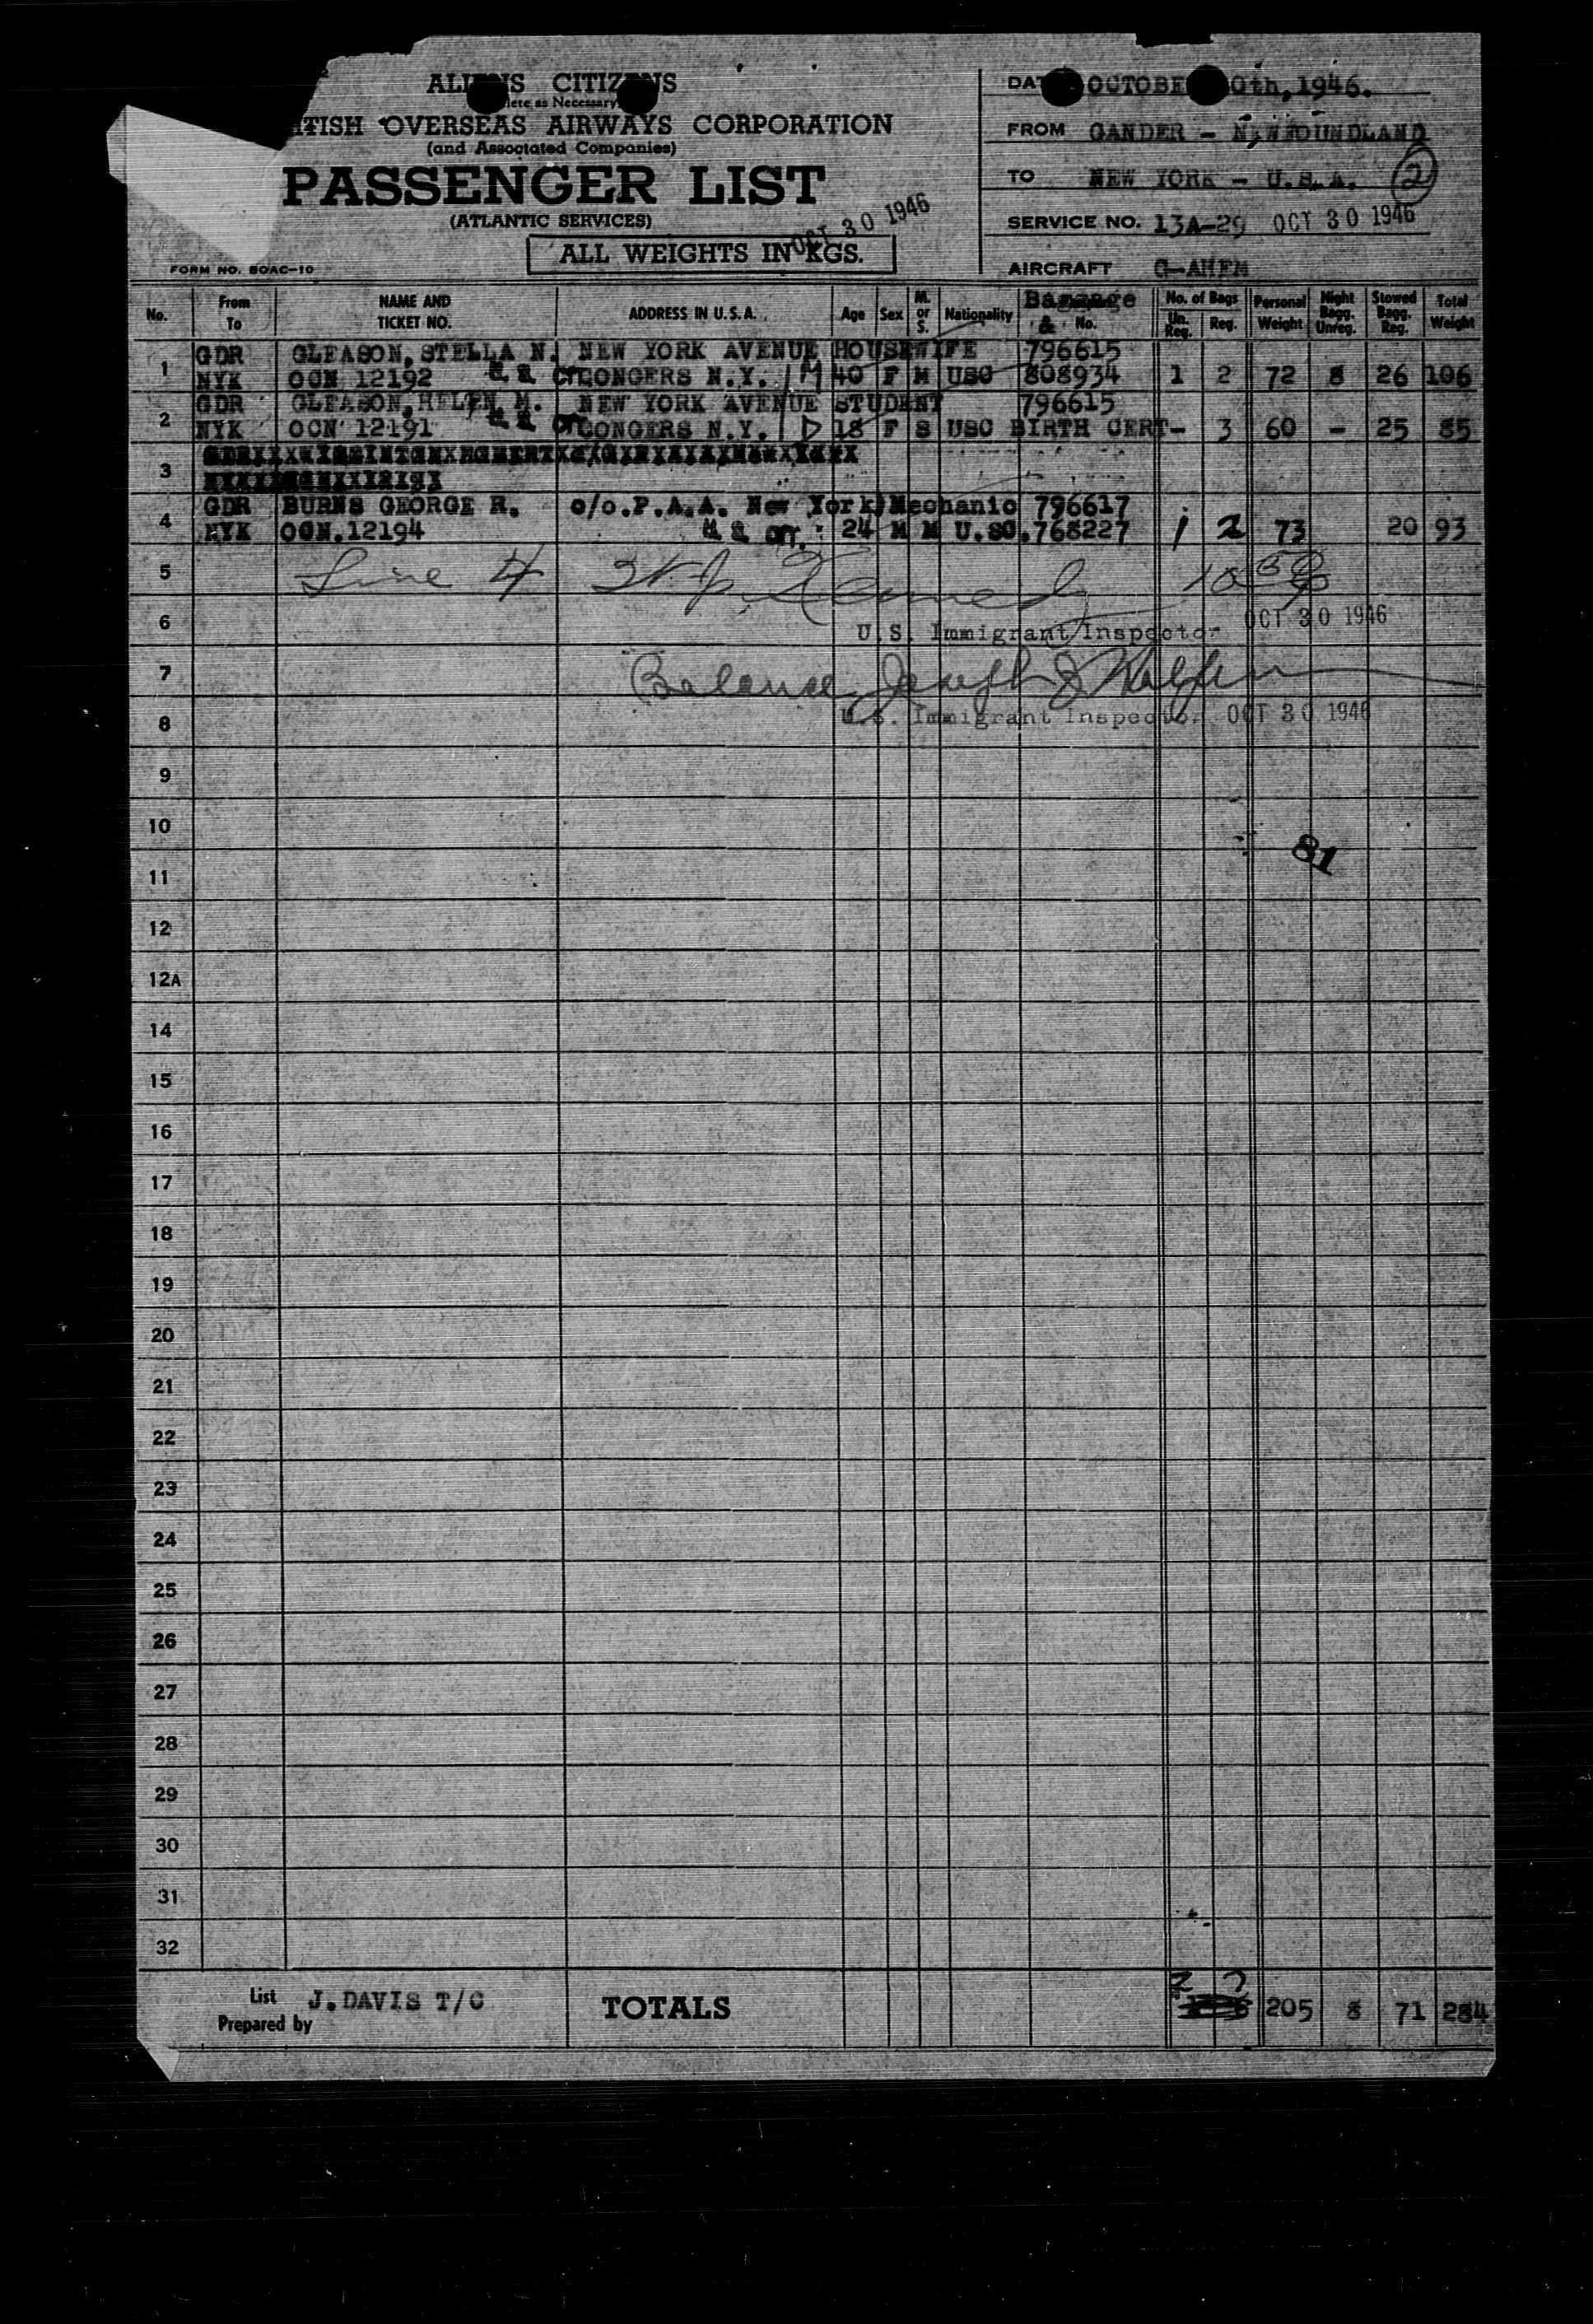 ALIENS CITIZENS
lete as Necessary
TISH OVERSEAS AIRWAYS CORPORATION
(and Associated Companies)
PASSENGER LIST
(ATLANTIC SERVICES)
OCT 30 1946
ALL WEIGHTS IN KGS.
FORM NO. BOAC-10
DAT OCTOBE 0th, 1946.
FROM GANDER - NEWFOUNDLAND
TO NEW YORK - U.S.A. 2
SERVICE NO. 13A-29 OCT 30 1946
AIRCRAFT G-AHEM
No. From To NAME AND TICKET NO. ADDRESS IN U.S.A. Age Sex M. or S. Nationality & No. No. of Bags Un. Reg. Reg. Personal Weight Night Bagg. Unreg. Stowed Bagg. Reg. Total Weight
1 GDR GLEASON, STELLA N. NEW YORK AVENUE HOUSEWIFE 796615
NYK OCN 12192 CONGERS N.Y. M 40 F M USC 808934 1 2 72 8 26 106
2 GDR GLEASON, HELEN M. NEW YORK AVENUE STUDENT 796615
NYK OCN 12191 CONGERS N.Y. D 18 F S USC BIRTH CERT - 3 60 - 25 85
3
4 GDR BURNS GEORGE R. c/o.P.A.A. New York Mechanic 796617
NYK OCN.12194 24 M M U.SC. 768227 1 2 73 20 93
5 Line 4
6 U.S. Immigrant Inspector OCT 30 1946
7 Balance Joseph J
8 U.S. Immigrant Inspector OCT 30 1946
9
10
81
11
12
12A
14
15
16
17
18
19
20
21
22
23
24
25
26
27
28
29
30
31
32
List Prepared by J. DAVIS T/C TOTALS 2 7 205 8 71 284